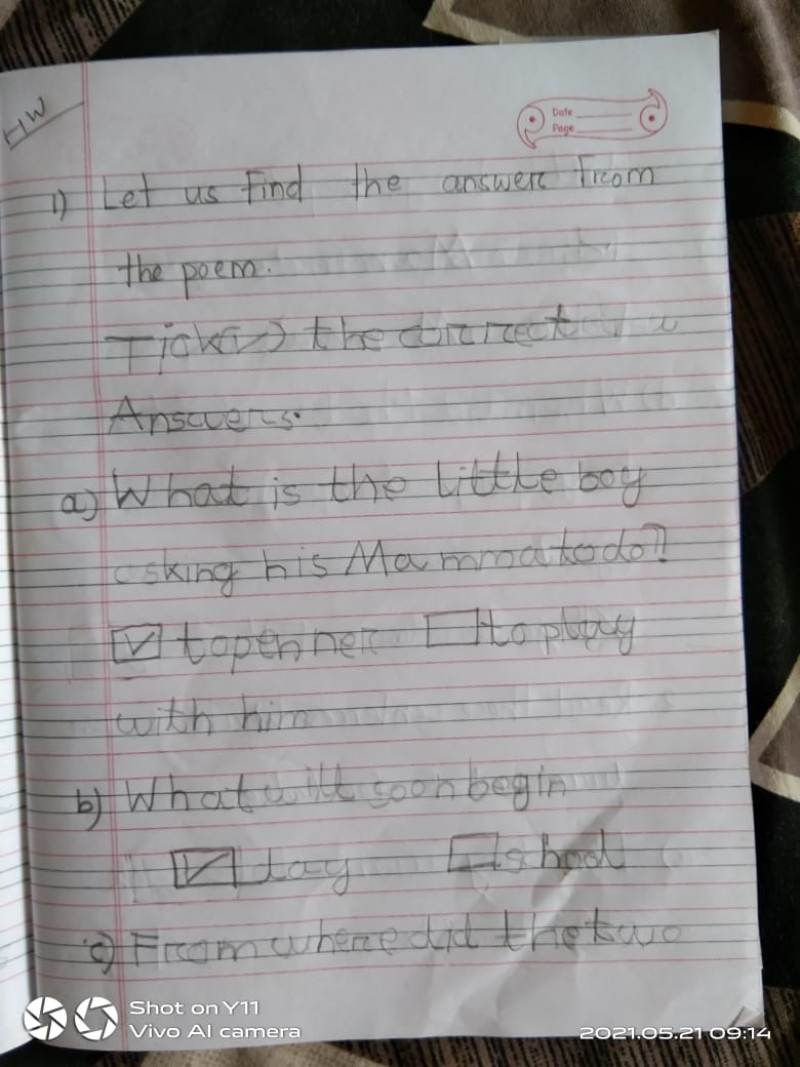 HW
Date
Page
1) Let us Find the answer From
the poem.
Tick(✓) the correct
Answers.
a) What is the little boy
asking his Mamma to do?
☑ to pen her ☐ to play
with him
b) What will soon begin
☑ day ☐ shool
c) From where did the two
Shot on Y11
Vivo AI camera
2021.05.21 09:14